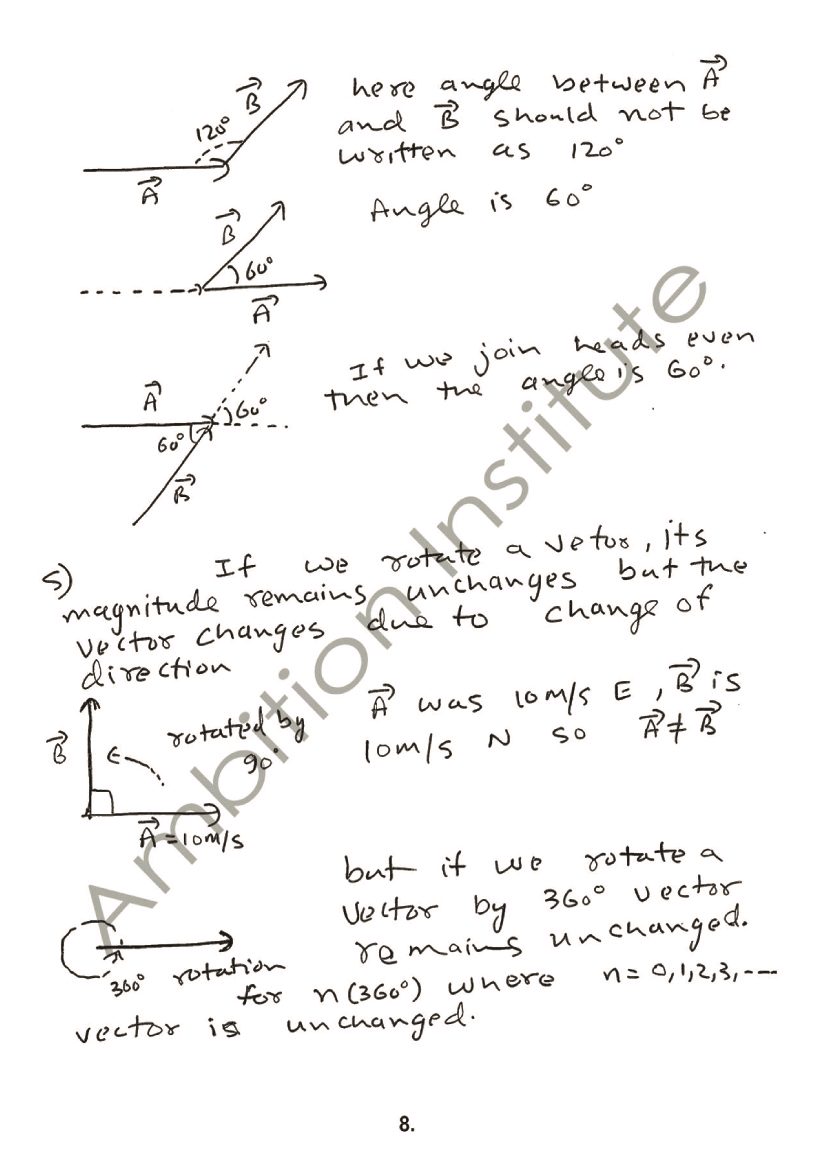 here angle between A⃗
and B⃗ should not be
written as 120°
B⃗
120°
A⃗
Angle is 60°
B⃗
60°
A⃗
If we join heads even
then the angle is 60°.
A⃗
60°
60°
B⃗
5) If we rotate a vetor, its
magnitude remains unchanges but the
vector changes due to change of
direction
A⃗ was 10m/s E, B⃗ is
10m/s N so A⃗ ≠ B⃗
B⃗
rotated by
90°
A⃗ = 10m/s
but if we rotate a
vector by 360° vector
remains unchanged.
360° rotation
for n(360°) where n = 0,1,2,3,----
vector is unchanged.
Ambition Institute
8.